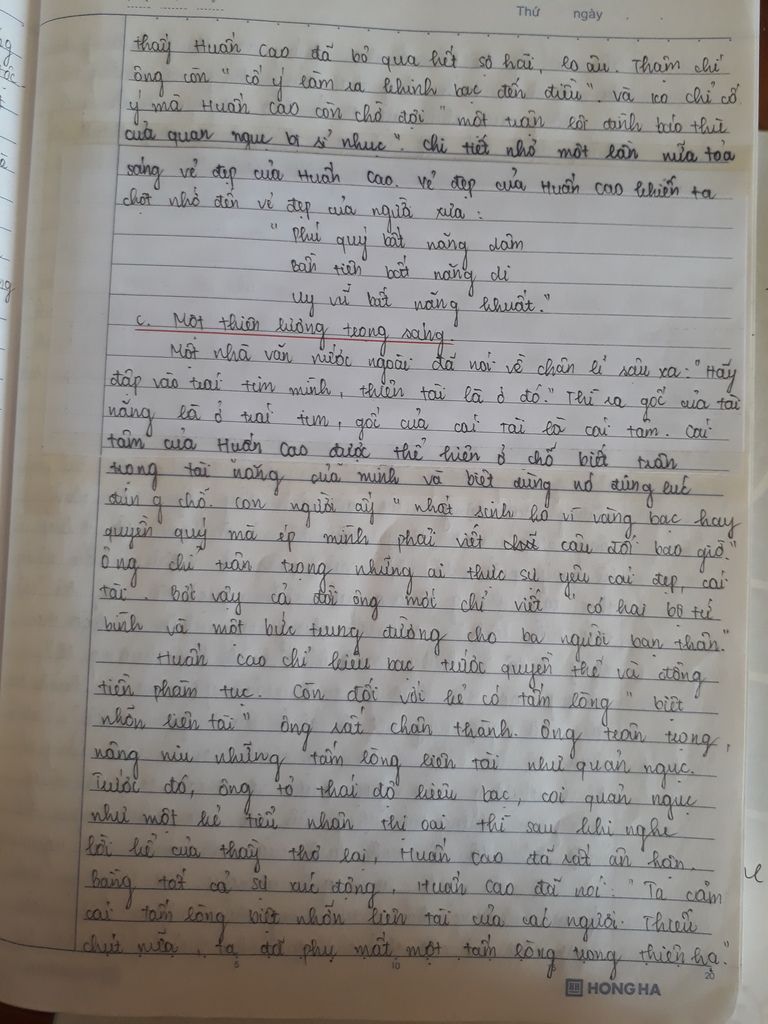 Thứ ngày
thấy Huấn Cao đã bỏ qua hết sợ hãi, lo âu. Thậm chí
ông còn "cố ý làm ra khinh bạc đến điều". Và ko chỉ cố
ý mà Huấn Cao còn chờ đợi "một trận lôi đình báo thù
của quan ngục bị sỉ nhục". Chi tiết nhỏ một lần nữa tỏa
sáng vẻ đẹp của Huấn Cao. Vẻ đẹp của Huấn Cao khiến ta
chợt nhớ đến vẻ đẹp của người xưa:
"Phú quý bất năng dâm
Bần tiện bất năng di
Uy vũ bất năng khuất."
c. Một thiên lương trong sáng
Một nhà văn nước ngoài đã nói về chân lí sâu xa: "Hãy
đập vào trái tim mình, thiên tài là ở đó." Thì ra gốc của tài
năng là ở trái tim, gốc của cái tài là cái tâm. Cái
tâm của Huấn Cao được thể hiện ở chỗ biết trân
trọng tài năng của mình và biết dùng nó đúng lúc
đúng chỗ. Con người ấy "nhất sinh ko vì vàng bạc hay
quyền quý mà ép mình phải viết câu đối bao giờ."
Ông chỉ trân trọng những ai thực sự yêu cái đẹp, cái
tài. Bởi vậy cả đời ông mới chỉ viết "có hai bộ tứ
bình và một bức trung đường cho ba người bạn thân."
Huấn Cao chỉ kiêu bạc trước quyền thế và đồng
tiền phàm tục. Còn đối với kẻ có tấm lòng "biệt
nhỡn liên tài" ông rất chân thành. Ông trân trọng,
nâng niu những tấm lòng liên tài như quản ngục.
Trước đó, ông tỏ thái độ kiêu bạc, coi quản ngục
như một kẻ tiểu nhân thị oai thì sau khi nghe
lời kể của thầy thơ lại, Huấn Cao đã rất ân hận.
Bằng tất cả sự xúc động, Huấn Cao đã nói: "Ta cảm
cái tấm lòng biệt nhỡn liên tài của các người. Thiếu
chút nữa, ta đã phụ mất một tấm lòng trong thiên hạ."
5 10 20
HONG HA